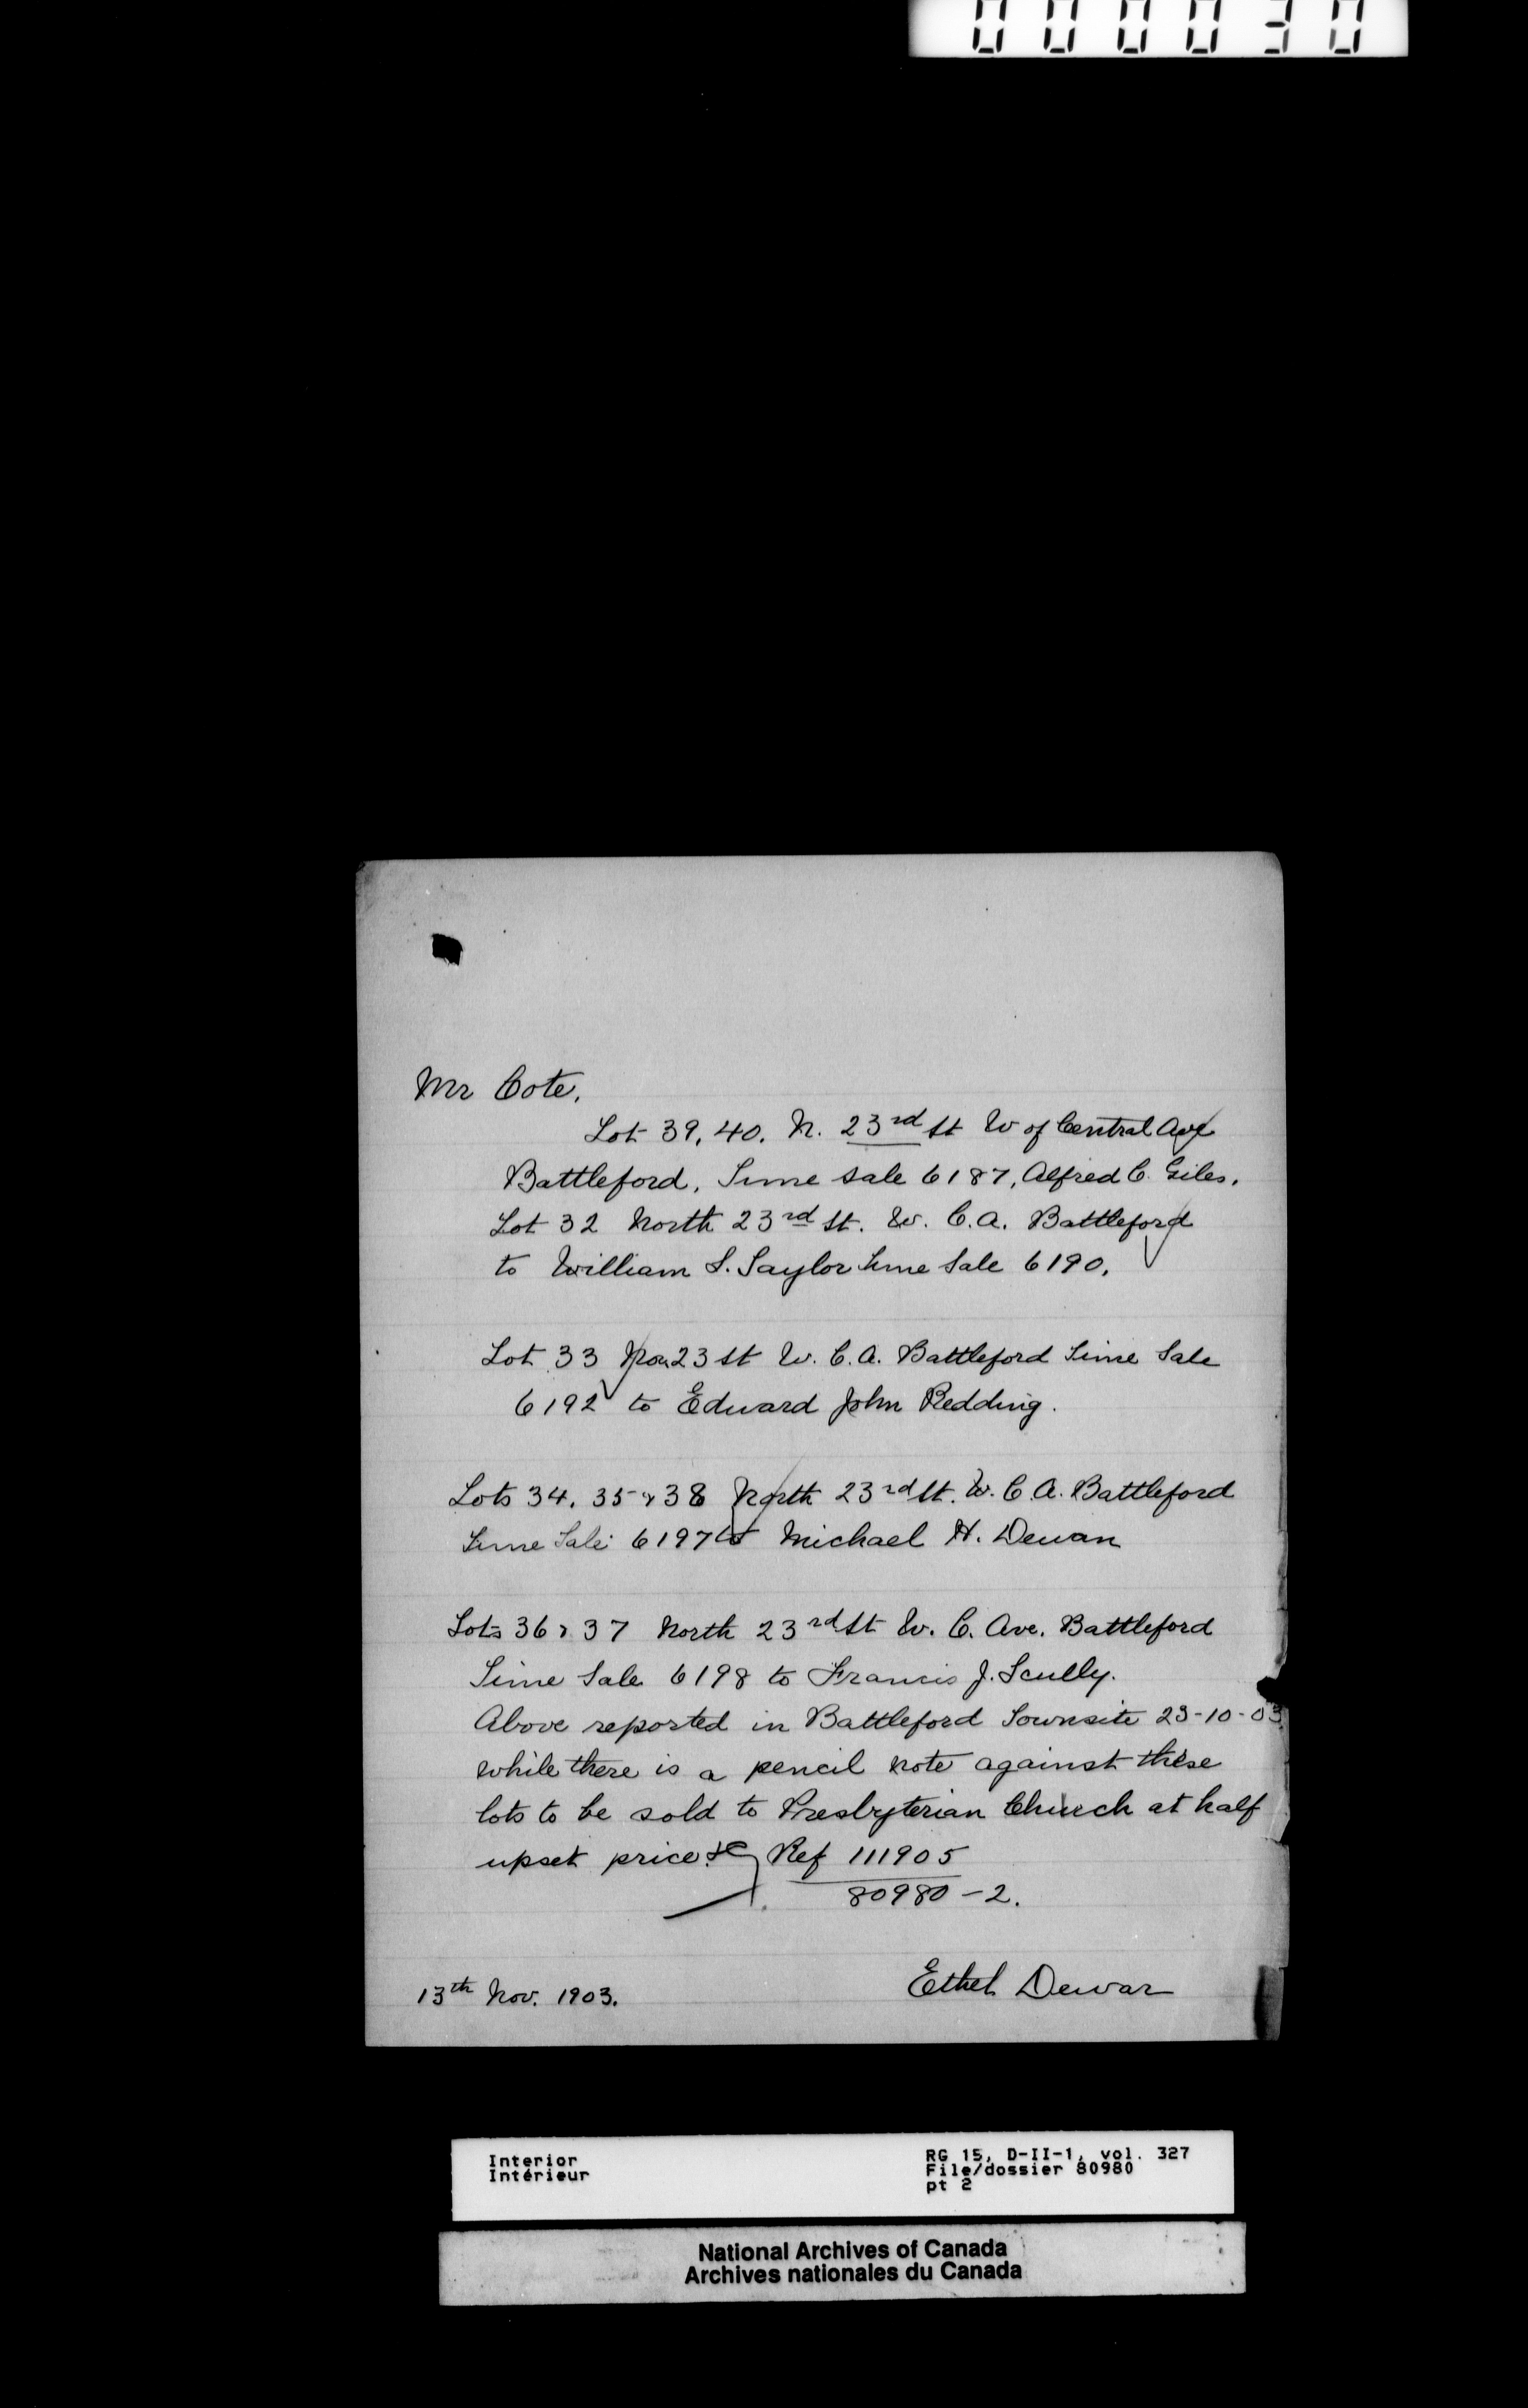 000030
Mr Cote,
Lot 39, 40. N. 23rd St W of Central Ave
Battleford, Time sale 6187, Alfred C. Giles,
Lot 32 North 23rd St. W. C.A. Battleford
to William S. Taylor time Sale 6190,
Lot 33 Nor 23 St W. C.A. Battleford Time Sale
6192 to Edward John Redding.
Lots 34, 35 & 38 North 23rd St. W. C.A. Battleford
Time Sale 6197 to Michael H. Dewan
Lots 36 & 37 North 23rd St W. C. Ave. Battleford
Time Sale 6198 to Francis J. Scully.
Above reported in Battleford Townsite 23-10-03
while there is a pencil note against these
lots to be sold to Presbyterian Church at half
upset price &c Ref 111905
80980-2.
Ethel Dewar
13th Nov. 1903.
Interior
Intérieur
RG 15, D-II-1, vol. 327
File/dossier 80980
pt 2
National Archives of Canada
Archives nationales du Canada